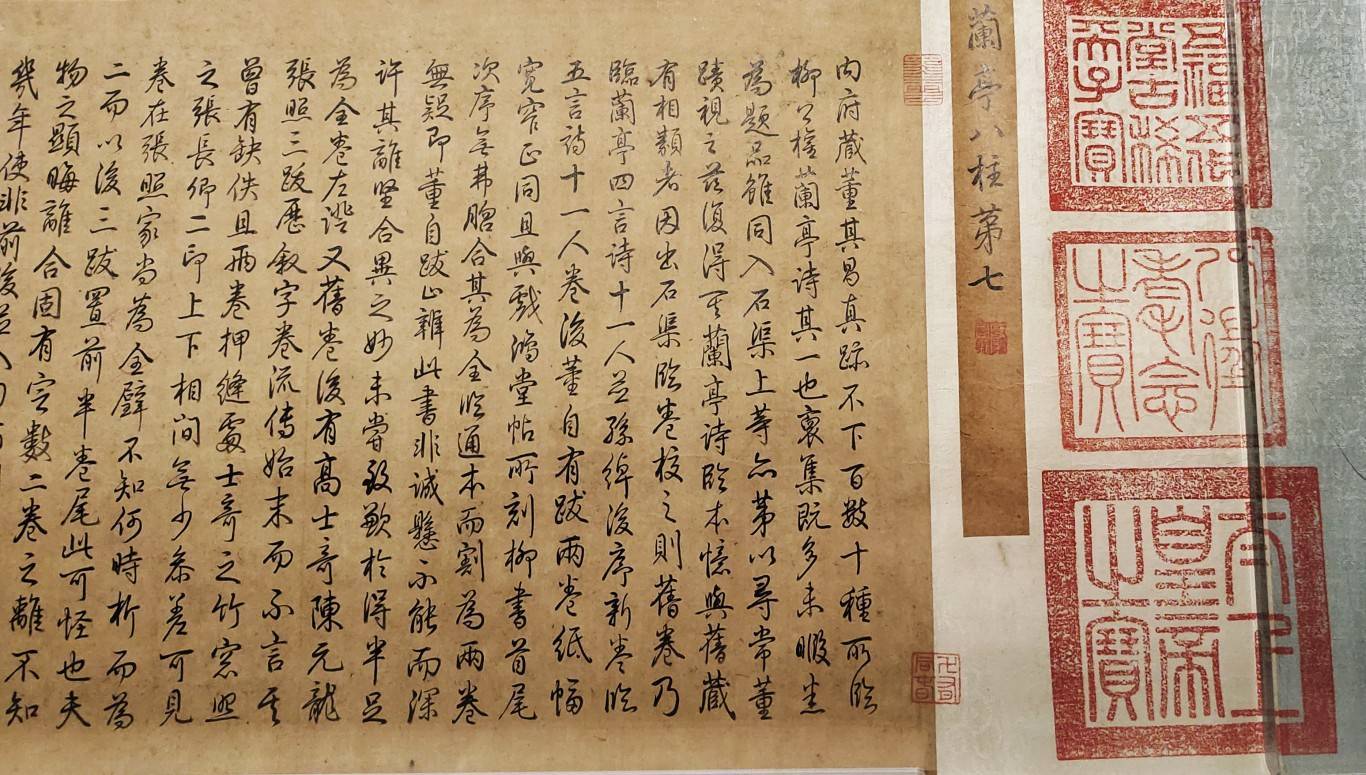 五福五代
堂古稀
天子寶
八徵
耄念
之寶
太上
皇帝
之寶
蘭亭八柱第七
內府藏董其昌真跡不下百數十種所臨
柳公權蘭亭詩其一也裒集既多未暇悉
為題品雖同入石渠上等亦第以尋常董
蹟視之茲復得其蘭亭詩臨本憶與舊藏
有相類者因出石渠臨卷校之則舊卷乃
臨蘭亭四言詩十一人並孫綽後序新卷臨
五言詩十一人卷後董自有跋兩卷紙幅
寬窄正同且與戲鴻堂帖所刻柳書首尾
次序無弗脗合其為全臨通本而割為兩卷
無疑即董自跋亦辨此書非誠懸不能而深
許其離堅合異之妙未嘗致歉於得半足
為全卷左證又舊卷後有高士奇陳元龍
張照三跋歷敘字卷流傳始末而不言其
曾有缺佚且兩卷押縫處士奇之竹窗照
之張長卿二印上下相間無少參差可見
卷在張照家尚為全璧不知何時析而為
二而以後三跋置前半卷尾此可怪也夫
物之顯晦離合固有定數二卷之離不知
幾年使非前後並入